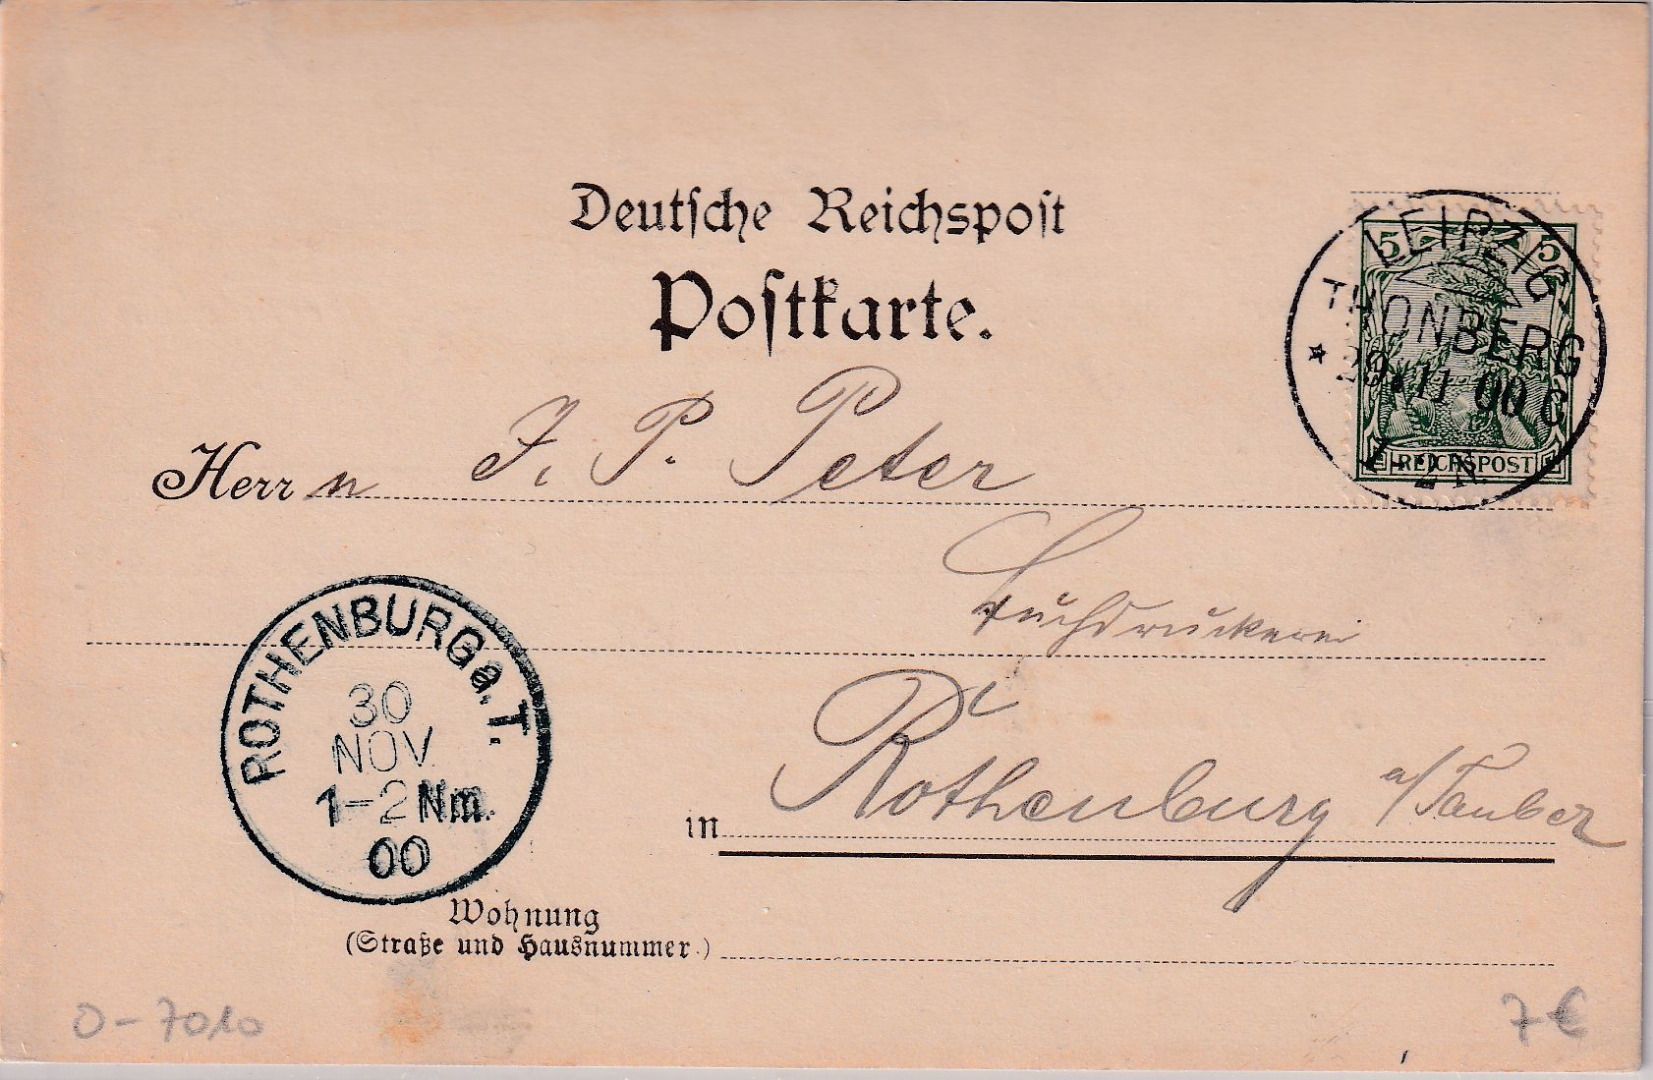 Deutsche Reichspost
Postkarte.
5 5
REICHSPOST
LEIPZIG
THONBERG
* 29.11.00 C
1-2 N.
Herrn J. P. Peter
Buchdruckerei
in Rothenburg a/Tauber
ROTHENBURG a.T.
30
NOV
1-2 Nm.
00
Wohnung
(Straße und Hausnummer.)
O-7010
7€